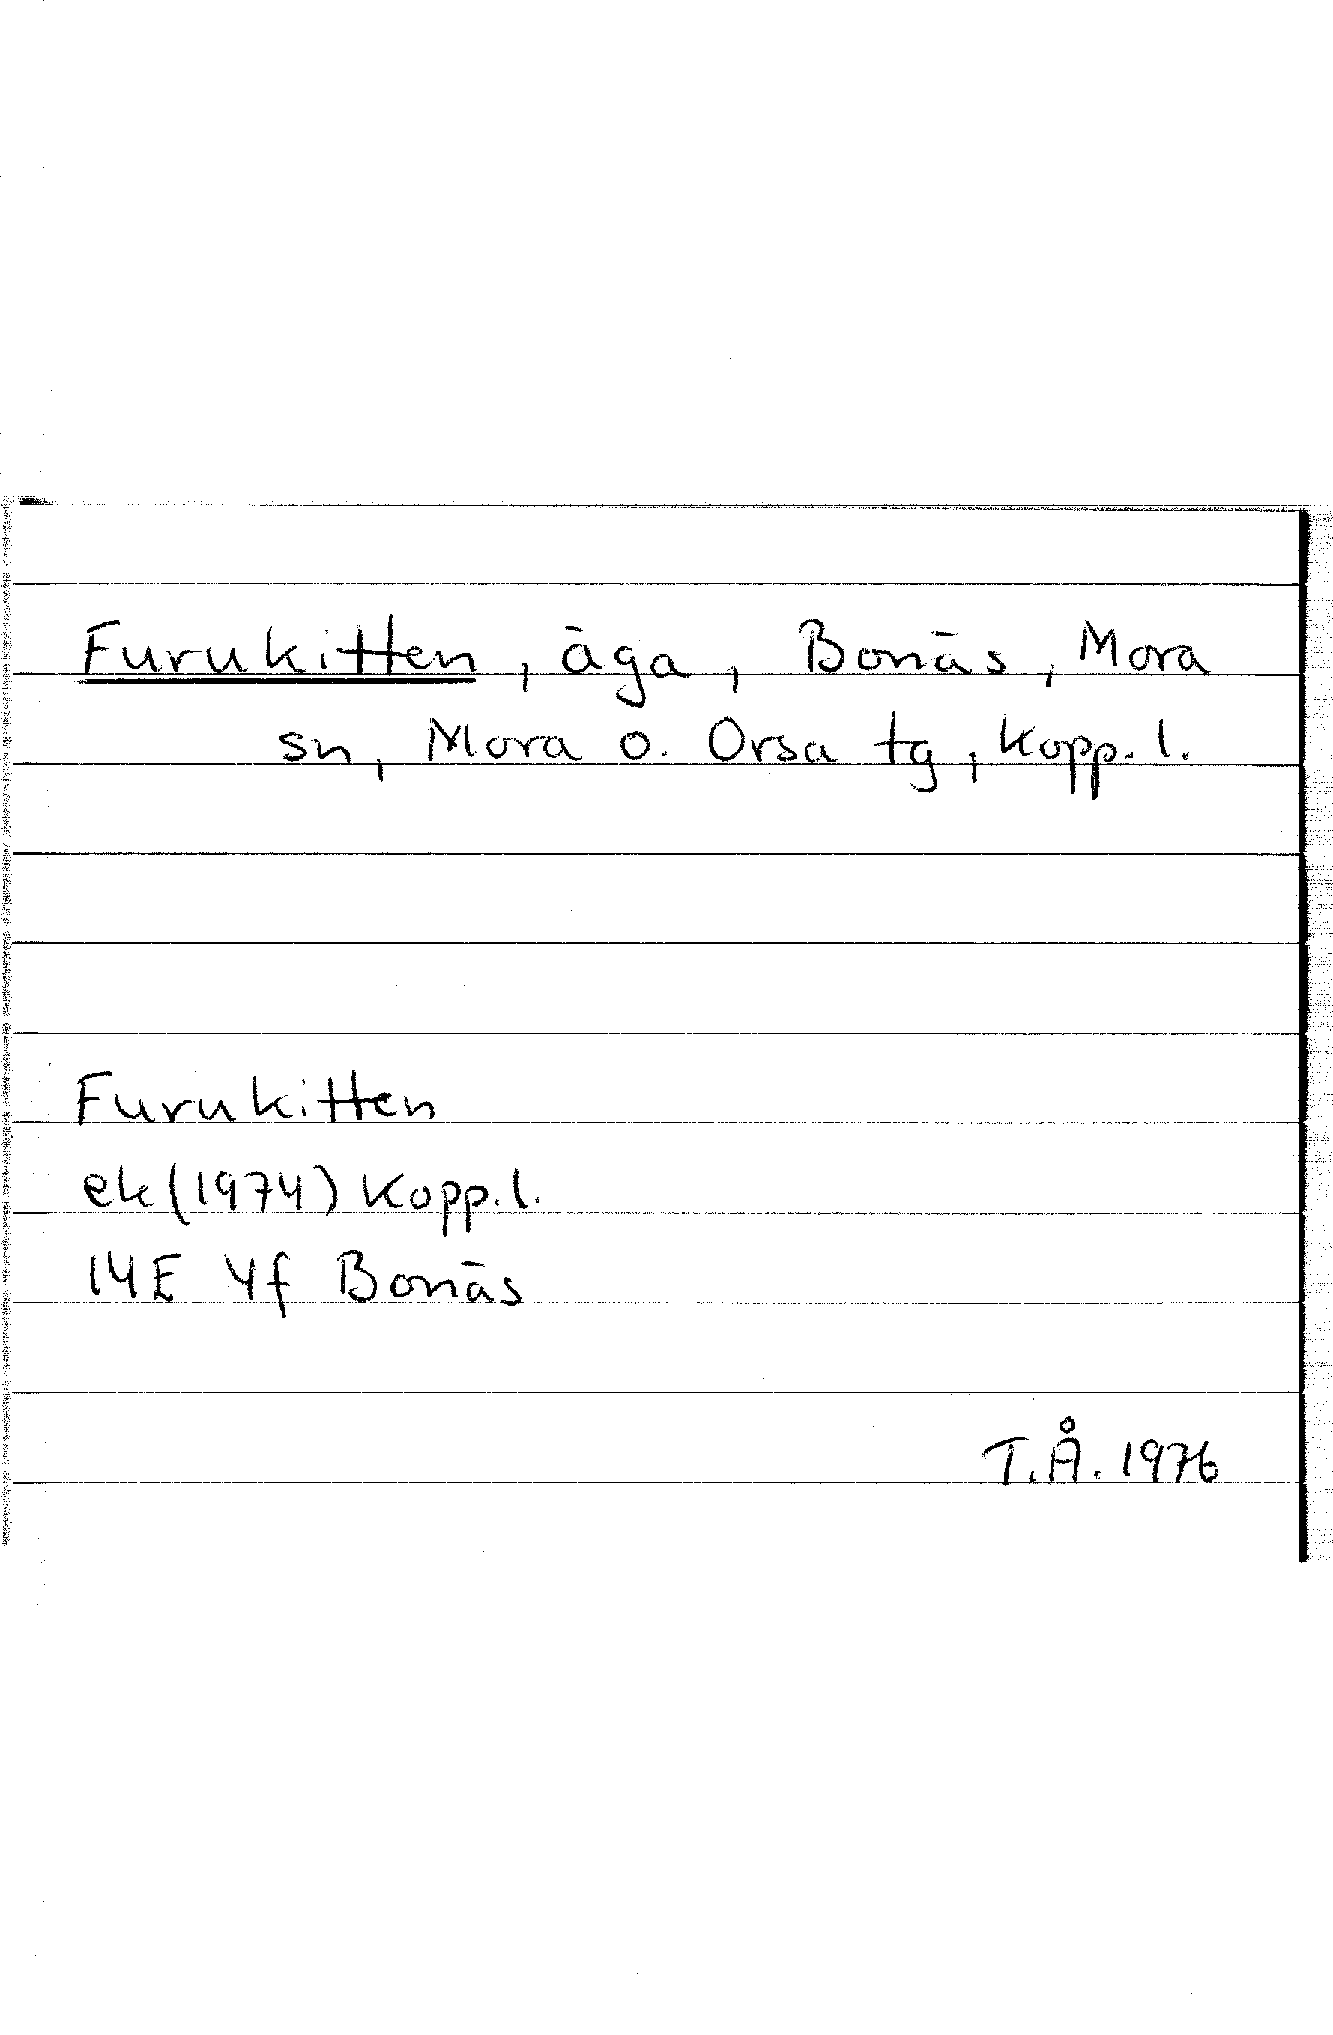 Furukitten, äga, Bonäs, Mora
sn, Mora o. Orsa tg, Kopp. l.
Furukitten
ek (1974) Kopp. l.
14E 4f Bonäs
T.Å. 1976